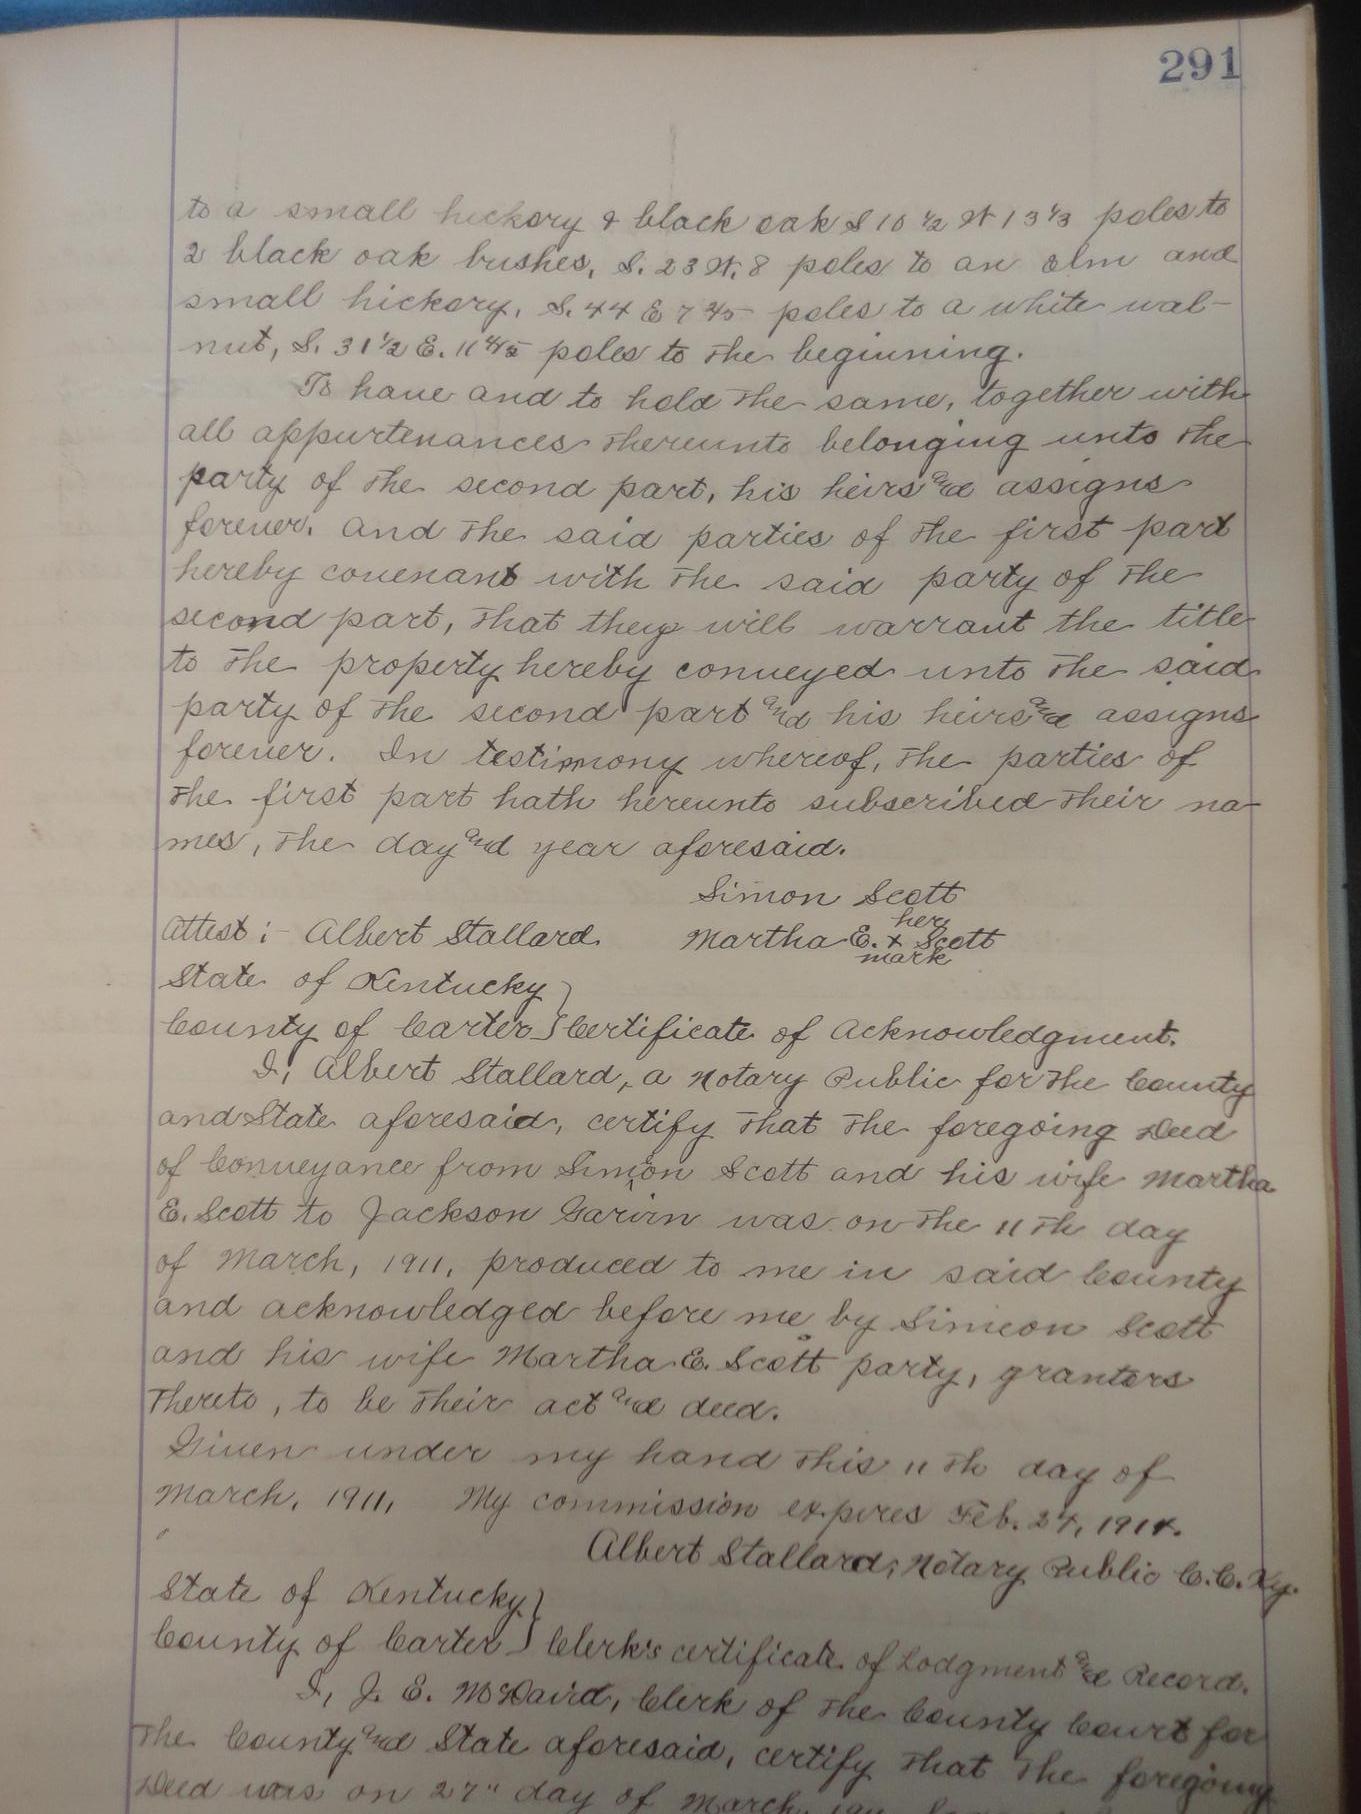 291
to a small hickory & black oak S 10 1/2 W 13 1/3 poles to
2 black oak bushes, S. 23 W. 8 poles to an elm and
small hickory, S. 44 E 7 4/5 poles to a white wal-
nut, S. 31 1/2 E. 11 4/5 poles to the beginning.
To have and to hold the same, together with
all appurtenances thereunto belonging unto the
party of the second part, his heirs and assigns
forever. And the said parties of the first part
hereby covenant with the said party of the
second part, that they will warrant the title
to the property hereby conveyed unto the said
party of the second part and his heirs and assigns
forever. In testimony whereof, the parties of
the first part hath hereunto subscribed their na-
mes, the day and year aforesaid.
Simon Scott
her
Attest:- Albert Stallard. Martha E. x Scott
mark
State of Kentucky }
County of Carter } Certificate of Acknowledgment.
I, Albert Stallard, a Notary Public for the County
and State aforesaid, certify that the foregoing Deed
of Conveyance from Simon Scott and his wife Martha
E. Scott to Jackson Garvin was on the 11th day
of March, 1911, produced to me in said County
and acknowledged before me by Simeon Scott
and his wife Martha E. Scott party, grantors
thereto, to be their act and deed.
Given under my hand this 11th day of
March, 1911, My commission expires Feb. 24, 1914.
Albert Stallard, Notary Public C.C. Ky.
State of Kentucky }
County of Carter } Clerk's certificate of Lodgment and Record.
I, J. E. McDavid, Clerk of the County Court for
the County and State aforesaid, certify that the foregoing
Deed was on 27" day of March, 1911